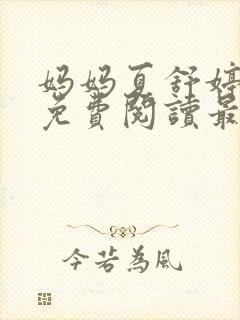 妈妈夏舒婷
免費閱讀最
今若為風